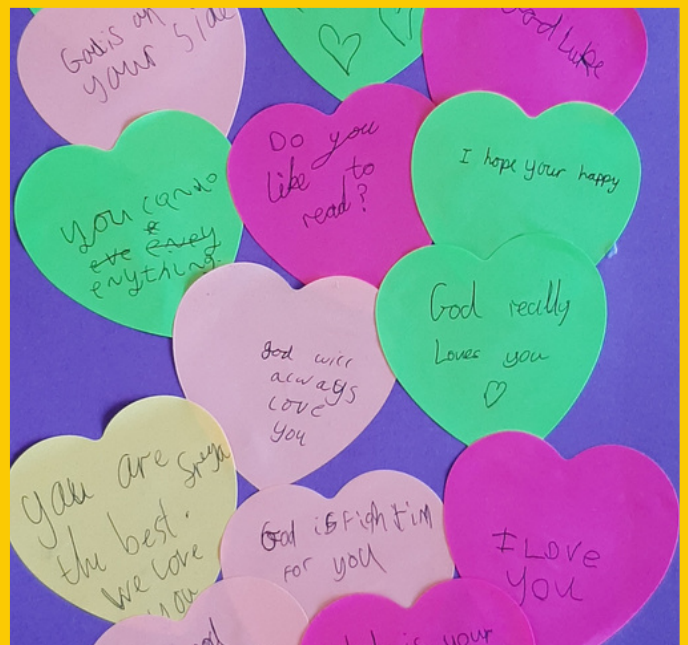 God is on
your side
Good Luke
you can do
eve eney
enything.
Do you
like to
read?
I hope your happy
God really
Loves you
god will
always
love
you
you are
the best.
we love
you
God is fightin
for you
I LOVE
YOU
is your